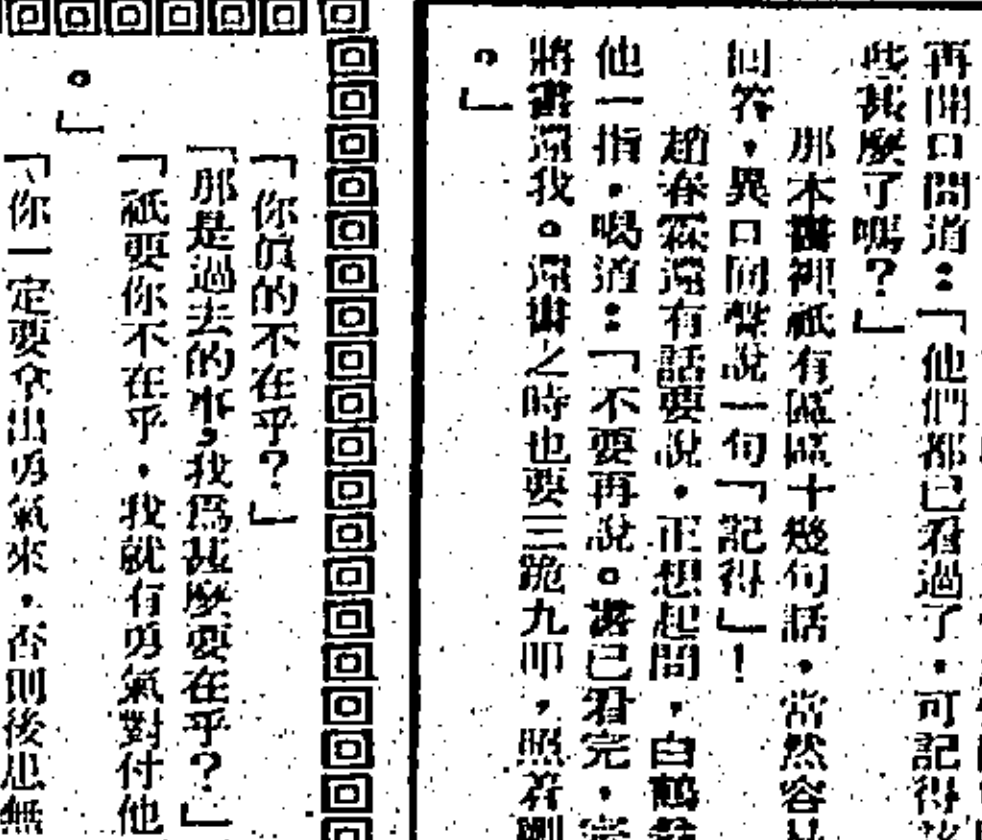 再開口問道：「他們都已看過了，可記得
些甚麼了嗎？」
那本書裡祇有區區十幾句話，當然容
回答，異口同聲說一句「記得」！
趙春霖還有話要說，正想起問，白鶴
他一指，喝道：「不要再說。書已看完，
將書還我。還書之時也要三跪九叩，照着剛
。」
「你眞的不在乎？」
「那是過去的事，我爲甚麼要在乎？」
「祇要你不在乎，我就有勇氣對付他
。」
「你一定要拿出勇氣來，否則後患無